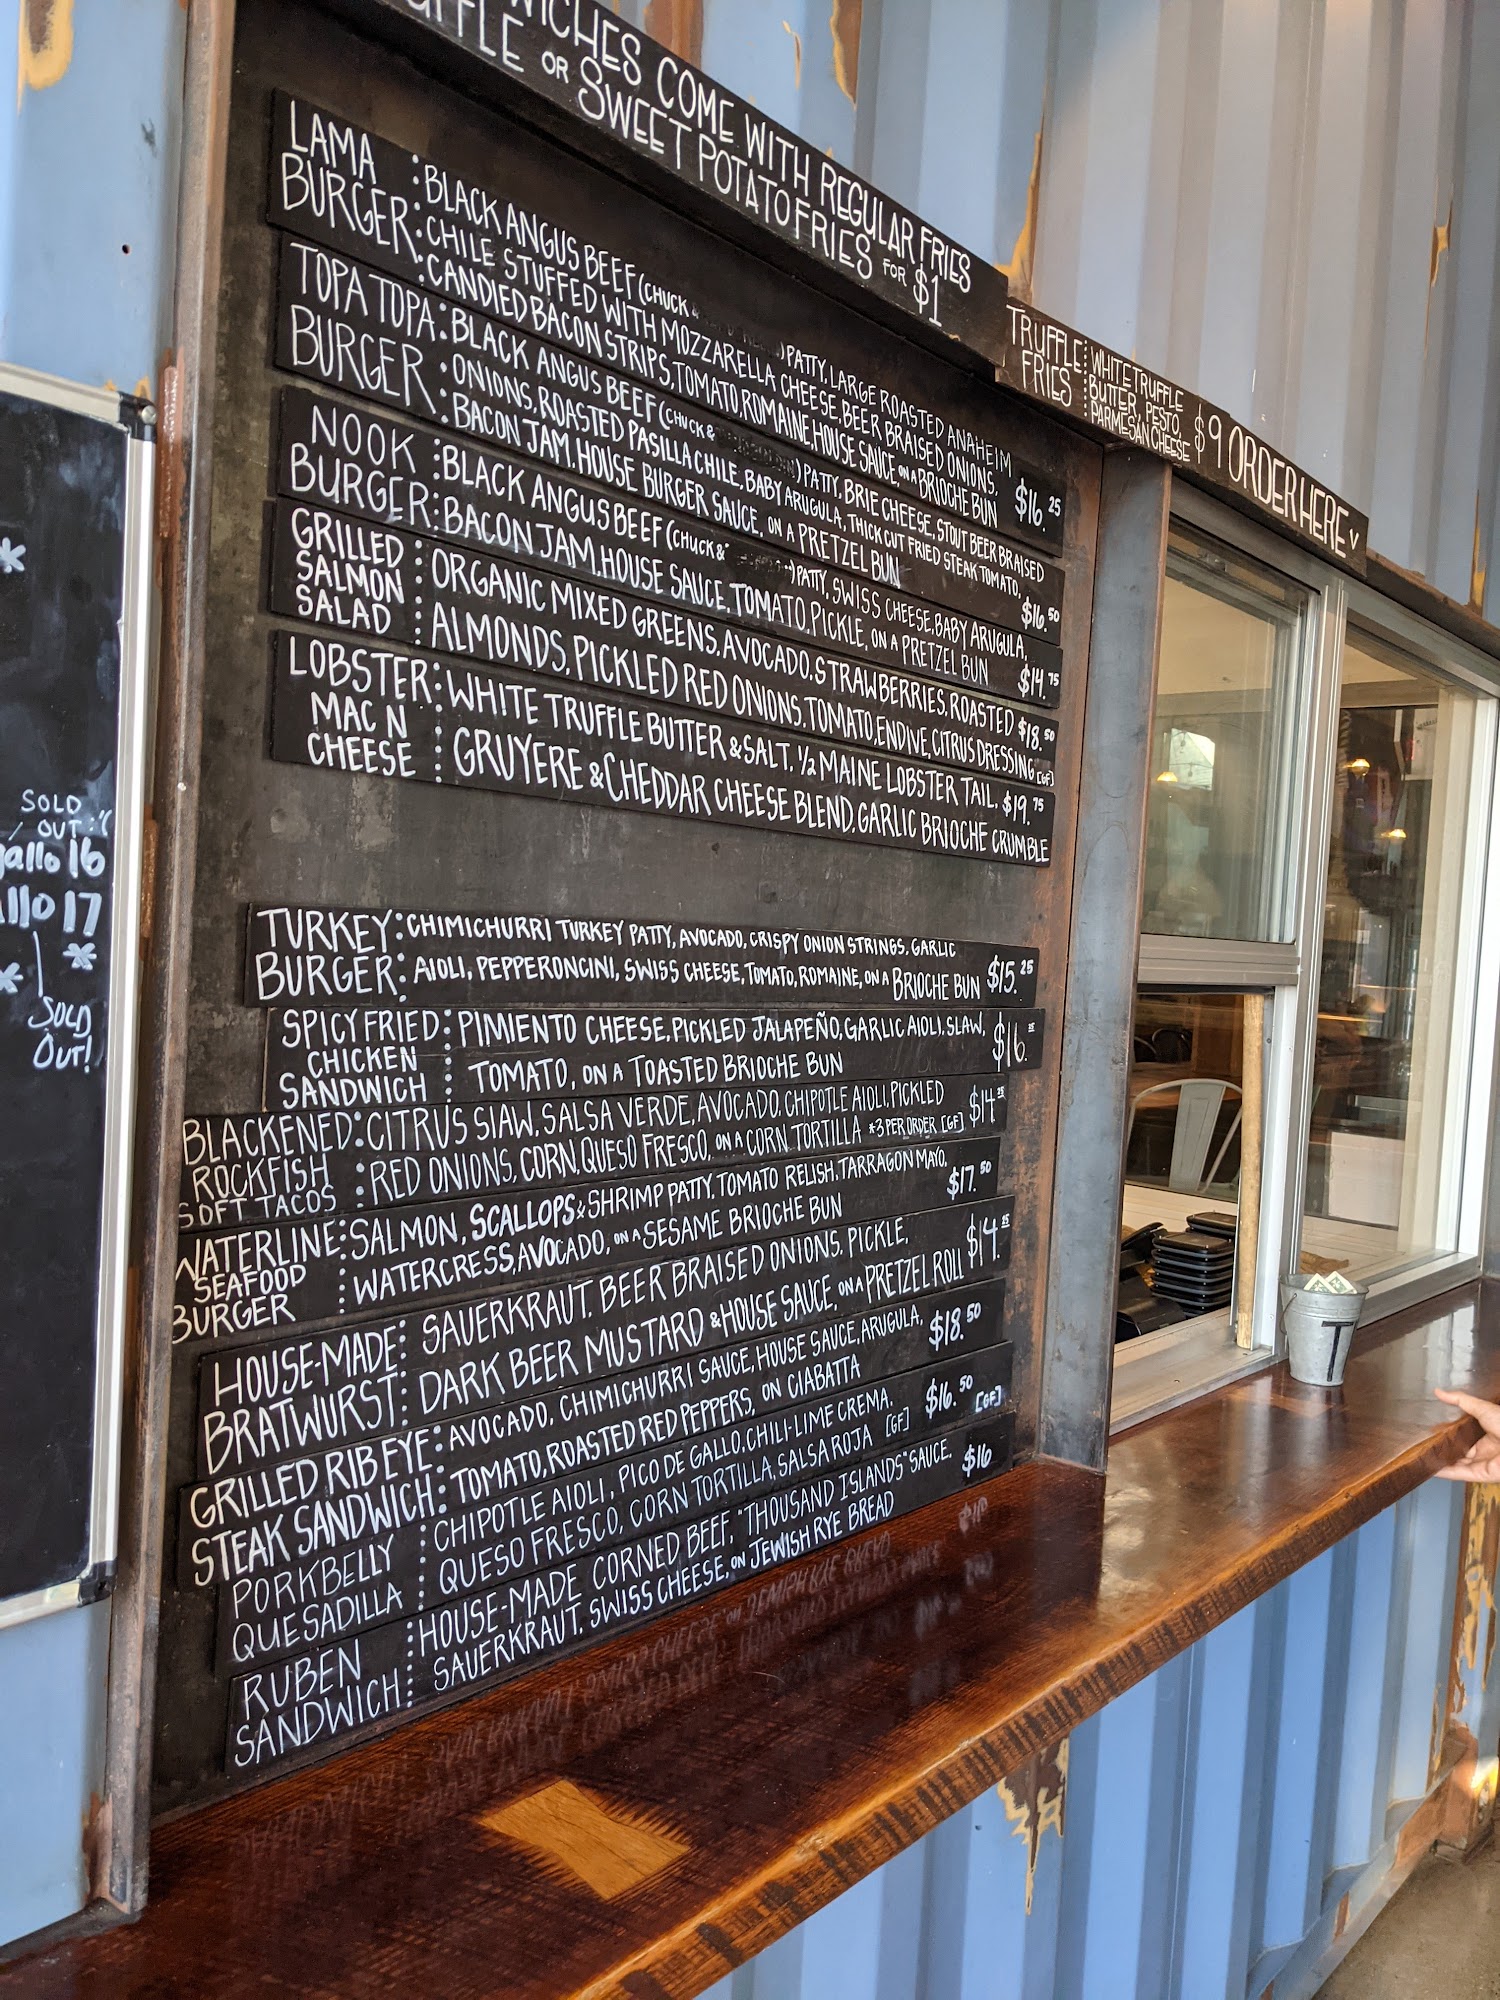 WICHES COME WITH REGULAR FRIES
OR SWEET POTATO FRIES FOR $1
LAMA BURGER
BLACK ANGUS BEEF (CHUCK & ) PATTY, LARGE ROASTED ANAHEIM
CHILE STUFFED WITH MOZZARELLA CHEESE, BEER BRAISED ONIONS,
CANDIED BACON STRIPS, TOMATO, ROMAINE, HOUSE SAUCE ON A BRIOCHE BUN
$16.25
TOPA TOPA BURGER
BLACK ANGUS BEEF (CHUCK & ) PATTY, BRIE CHEESE, STOUT BEER BRAISED
ONIONS, ROASTED PASILLA CHILE, BABY ARUGULA, THICK CUT FRIED STEAK TOMATO,
BACON JAM, HOUSE BURGER SAUCE, ON A PRETZEL BUN
$16.50
NOOK BURGER
BLACK ANGUS BEEF (CHUCK & ) PATTY, SWISS CHEESE, BABY ARUGULA,
BACON JAM, HOUSE SAUCE, TOMATO, PICKLE, ON A PRETZEL BUN
$14.75
GRILLED SALMON SALAD
ORGANIC MIXED GREENS, AVOCADO, STRAWBERRIES, ROASTED $18.50
ALMONDS, PICKLED RED ONIONS, TOMATO, ENDIVE, CITRUS DRESSING [GF]
LOBSTER MAC N CHEESE
WHITE TRUFFLE BUTTER & SALT, 1/2 MAINE LOBSTER TAIL, $19.75
GRUYERE & CHEDDAR CHEESE BLEND, GARLIC BRIOCHE CRUMBLE
TURKEY BURGER
CHIMICHURRI TURKEY PATTY, AVOCADO, CRISPY ONION STRINGS, GARLIC
AIOLI, PEPPERONCINI, SWISS CHEESE, TOMATO, ROMAINE, ON A BRIOCHE BUN $15.25
SPICY FRIED CHICKEN SANDWICH
PIMIENTO CHEESE, PICKLED JALAPEÑO, GARLIC AIOLI, SLAW,
TOMATO, ON A TOASTED BRIOCHE BUN
$16.
BLACKENED ROCKFISH SOFT TACOS
CITRUS SLAW, SALSA VERDE, AVOCADO, CHIPOTLE AIOLI, PICKLED
RED ONIONS, CORN, QUESO FRESCO, ON A CORN TORTILLA *3 PER ORDER [GF]
$14.25
WATERLINE SEAFOOD BURGER
SALMON, SCALLOPS & SHRIMP PATTY, TOMATO RELISH, TARRAGON MAYO,
WATERCRESS, AVOCADO, ON A SESAME BRIOCHE BUN
$17.50
HOUSE-MADE BRATWURST
SAUERKRAUT, BEER BRAISED ONIONS, PICKLE,
DARK BEER MUSTARD & HOUSE SAUCE, ON A PRETZEL ROLL
$14.25
GRILLED RIB EYE STEAK SANDWICH
AVOCADO, CHIMICHURRI SAUCE, HOUSE SAUCE, ARUGULA,
TOMATO, ROASTED RED PEPPERS, ON CIABATTA
$18.50
PORKBELLY QUESADILLA
CHIPOTLE AIOLI, PICO DE GALLO, CHILI-LIME CREMA,
QUESO FRESCO, CORN TORTILLA, SALSA ROJA [GF]
$16.50
[GF]
RUBEN SANDWICH
HOUSE-MADE CORNED BEEF, "THOUSAND ISLANDS" SAUCE,
SAUERKRAUT, SWISS CHEESE, ON JEWISH RYE BREAD
$16
TRUFFLE FRIES
WHITE TRUFFLE
BUTTER, PESTO,
PARMESAN CHEESE
$9
ORDER HERE
SOLD
OUT :'(
gallo 16
llo 17
SOLD
OUT!
T